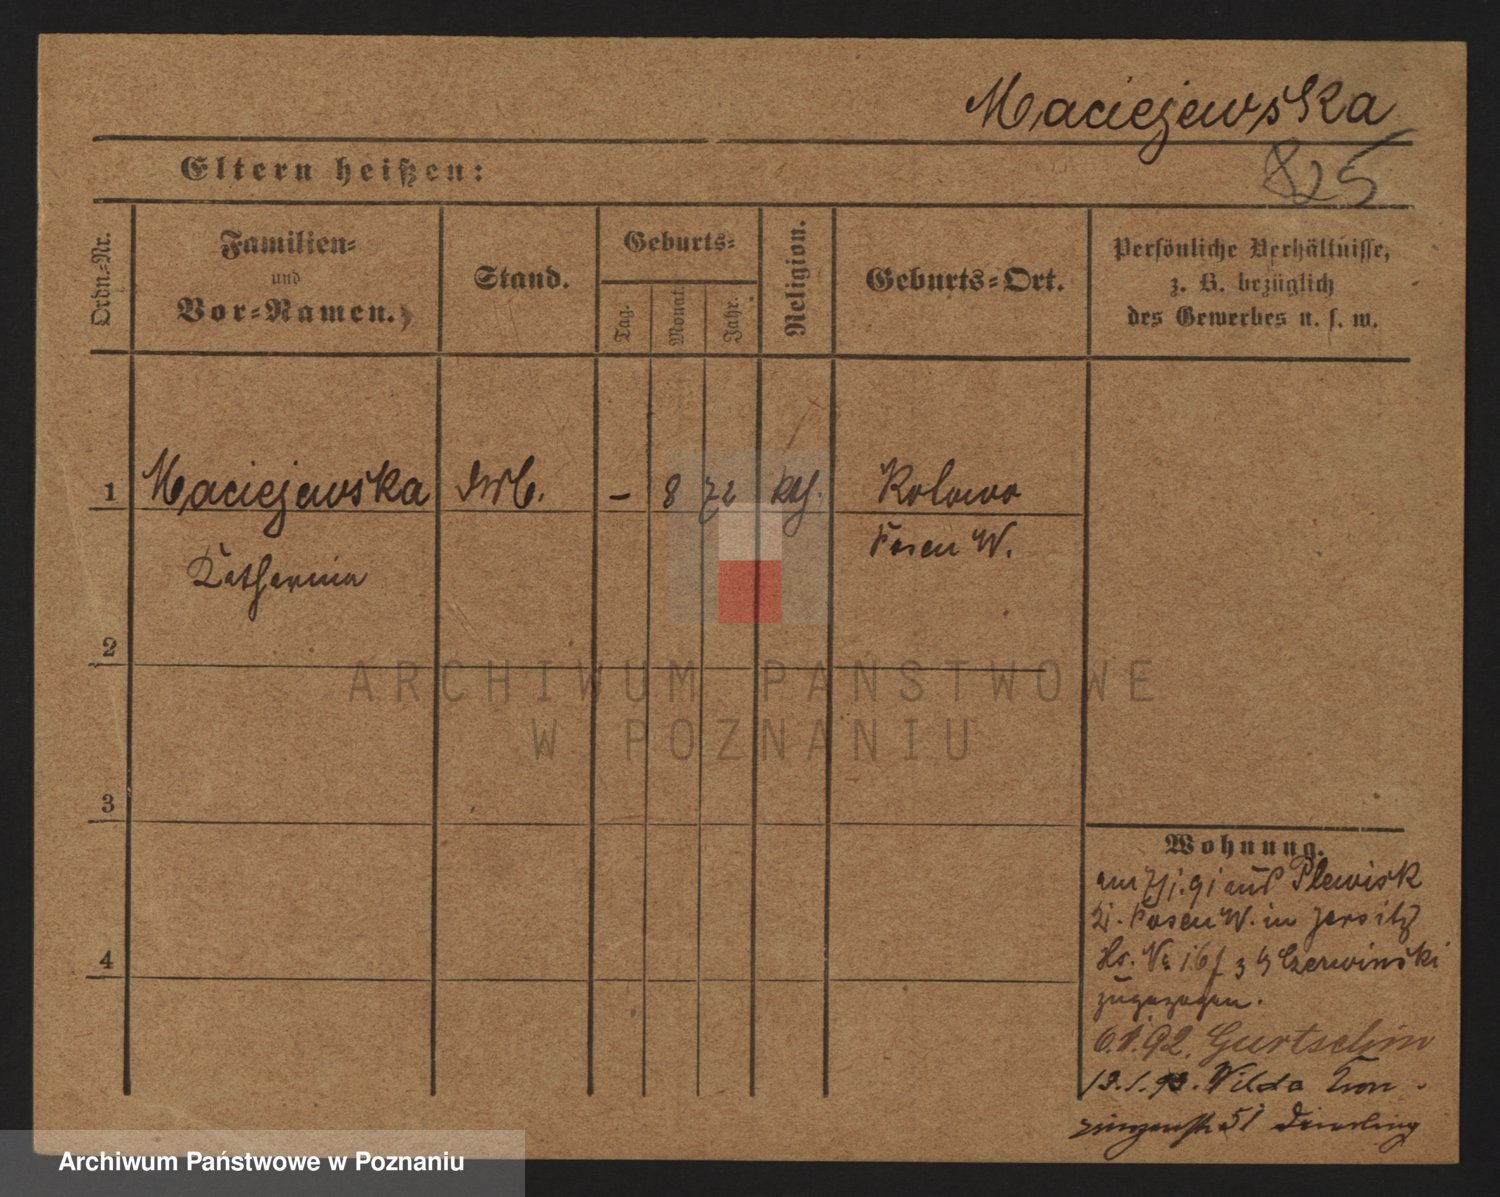 Maciejewska
825
Eltern heißen:
Ordn.=Nr.
Familien=
und
Vor=Namen.
Stand.
Geburts=
Tag.
Monat.
Jahr.
Religion.
Geburts=Ort.
Persönliche Verhältnisse,
z. B. bezüglich
des Gewerbes u. s. w.
1 Maciejewska – 8 72 kath. Kolowo
Katharina Posen W.
2
3
4
Wohnung.
am 91 aus Plewisk
Posen W. in Jersitz
Hs. Nr 16 Czerwinski
zugezogen.
6.1.92. Gurtschin
Wilda Kron
51
ARCHIWUM PAŃSTWOWE
W POZNANIU
Archiwum Państwowe w Poznaniu